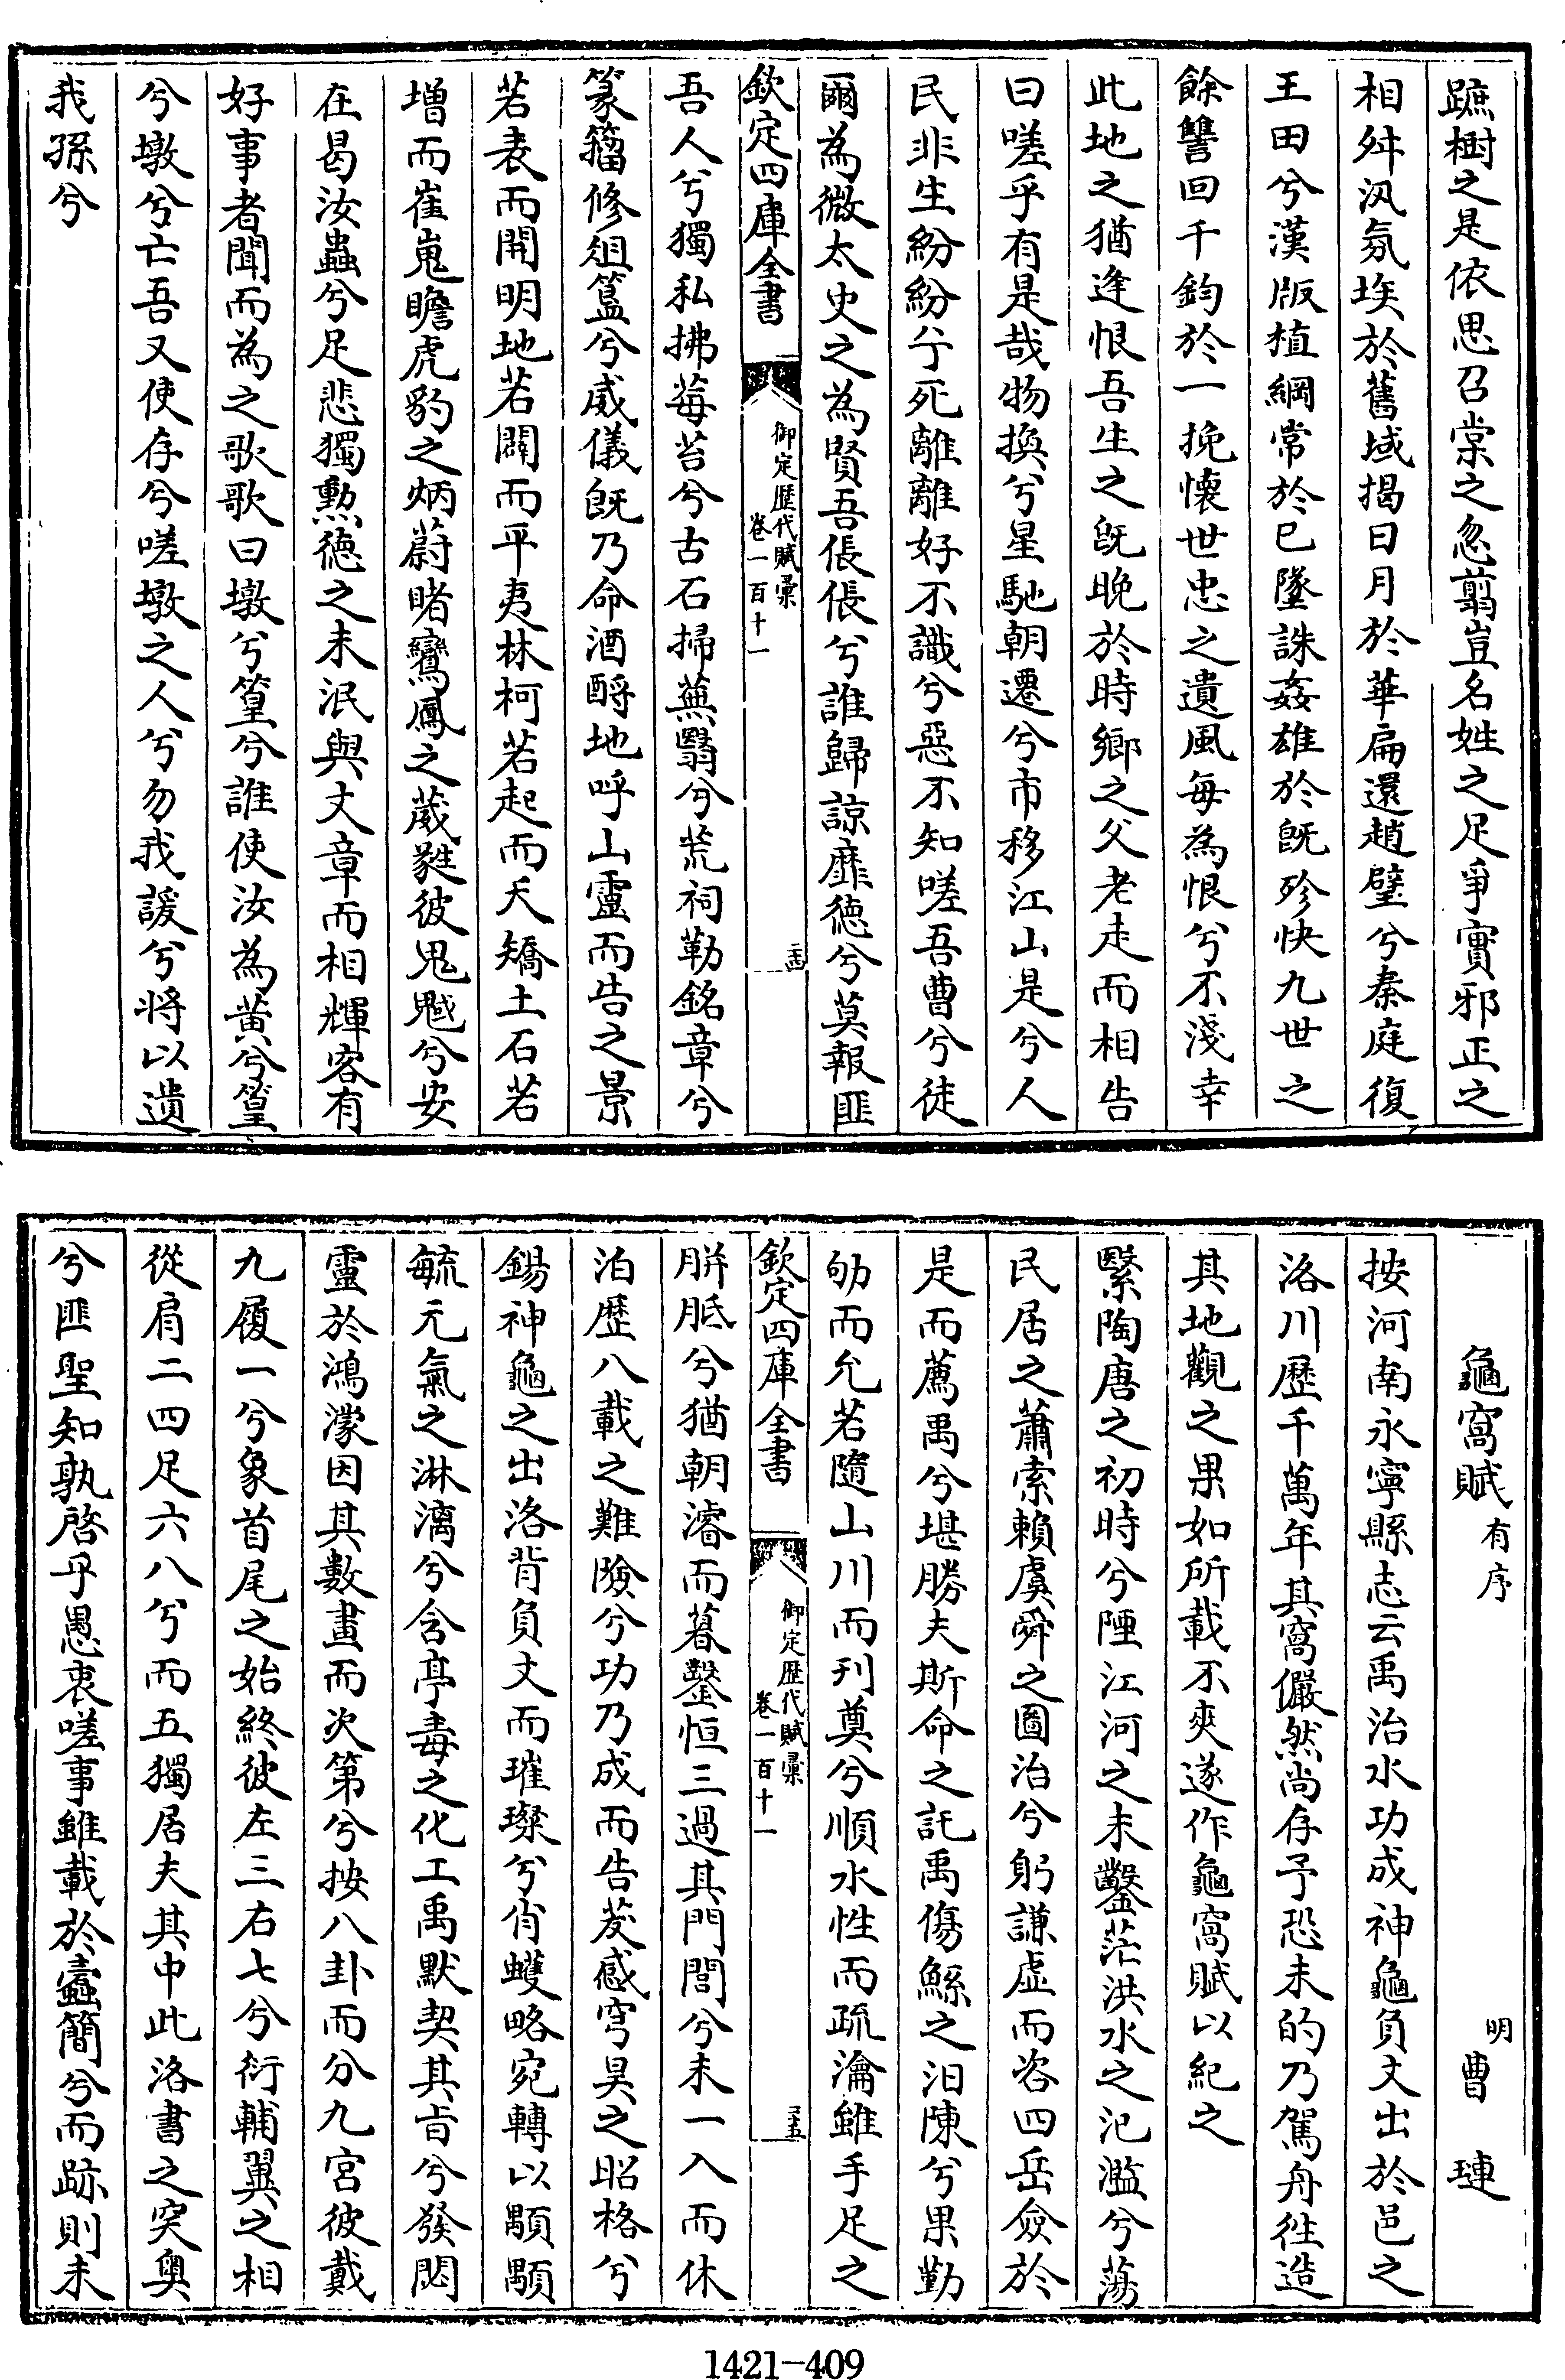 蹠樹之是依思召棠之忽翦豈名姓之足爭實邪正之
相舛汛氛埃於舊域揭日月於華扁還趙璧兮秦庭復
王田兮漢版植綱常於已墜誅姦雄於既殄快九世之
餘讐回千鈞於一挽懷世忠之遺風每為恨兮不淺幸
此地之猶逢恨吾生之既晚於時鄉之父老走而相告
曰嗟乎有是哉物換兮星馳朝遷兮市移江山是兮人
民非生紛紛兮死離離好不識兮惡不知嗟吾曹兮徒
爾為微太史之為賢吾倀倀兮誰歸諒靡德兮莫報匪
欽定四庫全書
御定歷代賦彙
卷一百十一
二十四
吾人兮獨私拂莓苔兮古石掃蕪翳兮荒祠勒銘章兮
篆籀修俎簋兮威儀既乃命酒酹地呼山靈而告之景
若表而開明地若闢而平夷林柯若起而夭矯土石若
增而崔嵬瞻虎豹之炳蔚睹鸞鳳之葳蕤彼鬼魃兮安
在曷汝蠱兮足悲獨勲德之未泯與文章而相輝客有
好事者聞而為之歌歌曰墩兮篁兮誰使汝為黃兮篁
兮墩兮亡吾又使存兮嗟墩之人兮勿我諼兮將以遺
我孫兮
龜窩賦有序
明 曹璉
按河南永寧縣志云禹治水功成神龜負文出於邑之
洛川歷千萬年其窩儼然尚存予恐未的乃駕舟往造
其地觀之果如所載不爽遂作龜窩賦以紀之
繄陶唐之初時兮陻江河之未鑿茫洪水之氾濫兮蕩
民居之蕭索賴虞舜之圖治兮躬謙虛而咨四岳僉於
是而薦禹兮堪勝夫斯命之託禹傷鯀之汨陳兮果勤
劬而允若隨山川而刋奠兮順水性而疏瀹雖手足之
欽定四庫全書
御定歷代賦彙
卷一百十一
二十五
胼胝兮猶朝濬而暮鑿恒三過其門閭兮未一入而休
泊歷八載之難險兮功乃成而告茇感穹昊之昭格兮
錫神龜之出洛背負文而璀璨兮肖蠖略宛轉以顒顒
毓元氣之淋漓兮含亭毒之化工禹默契其旨兮發閟
靈於鴻濛因其數畫而次第兮按八卦而分九宮彼戴
九履一兮象首尾之始終彼左三右七兮衍輔翼之相
從肩二四足六八兮而五獨居夫其中此洛書之突奥
兮匪聖知孰啓乎愚衷嗟事雖載於蠹簡兮而跡則未
1421-409